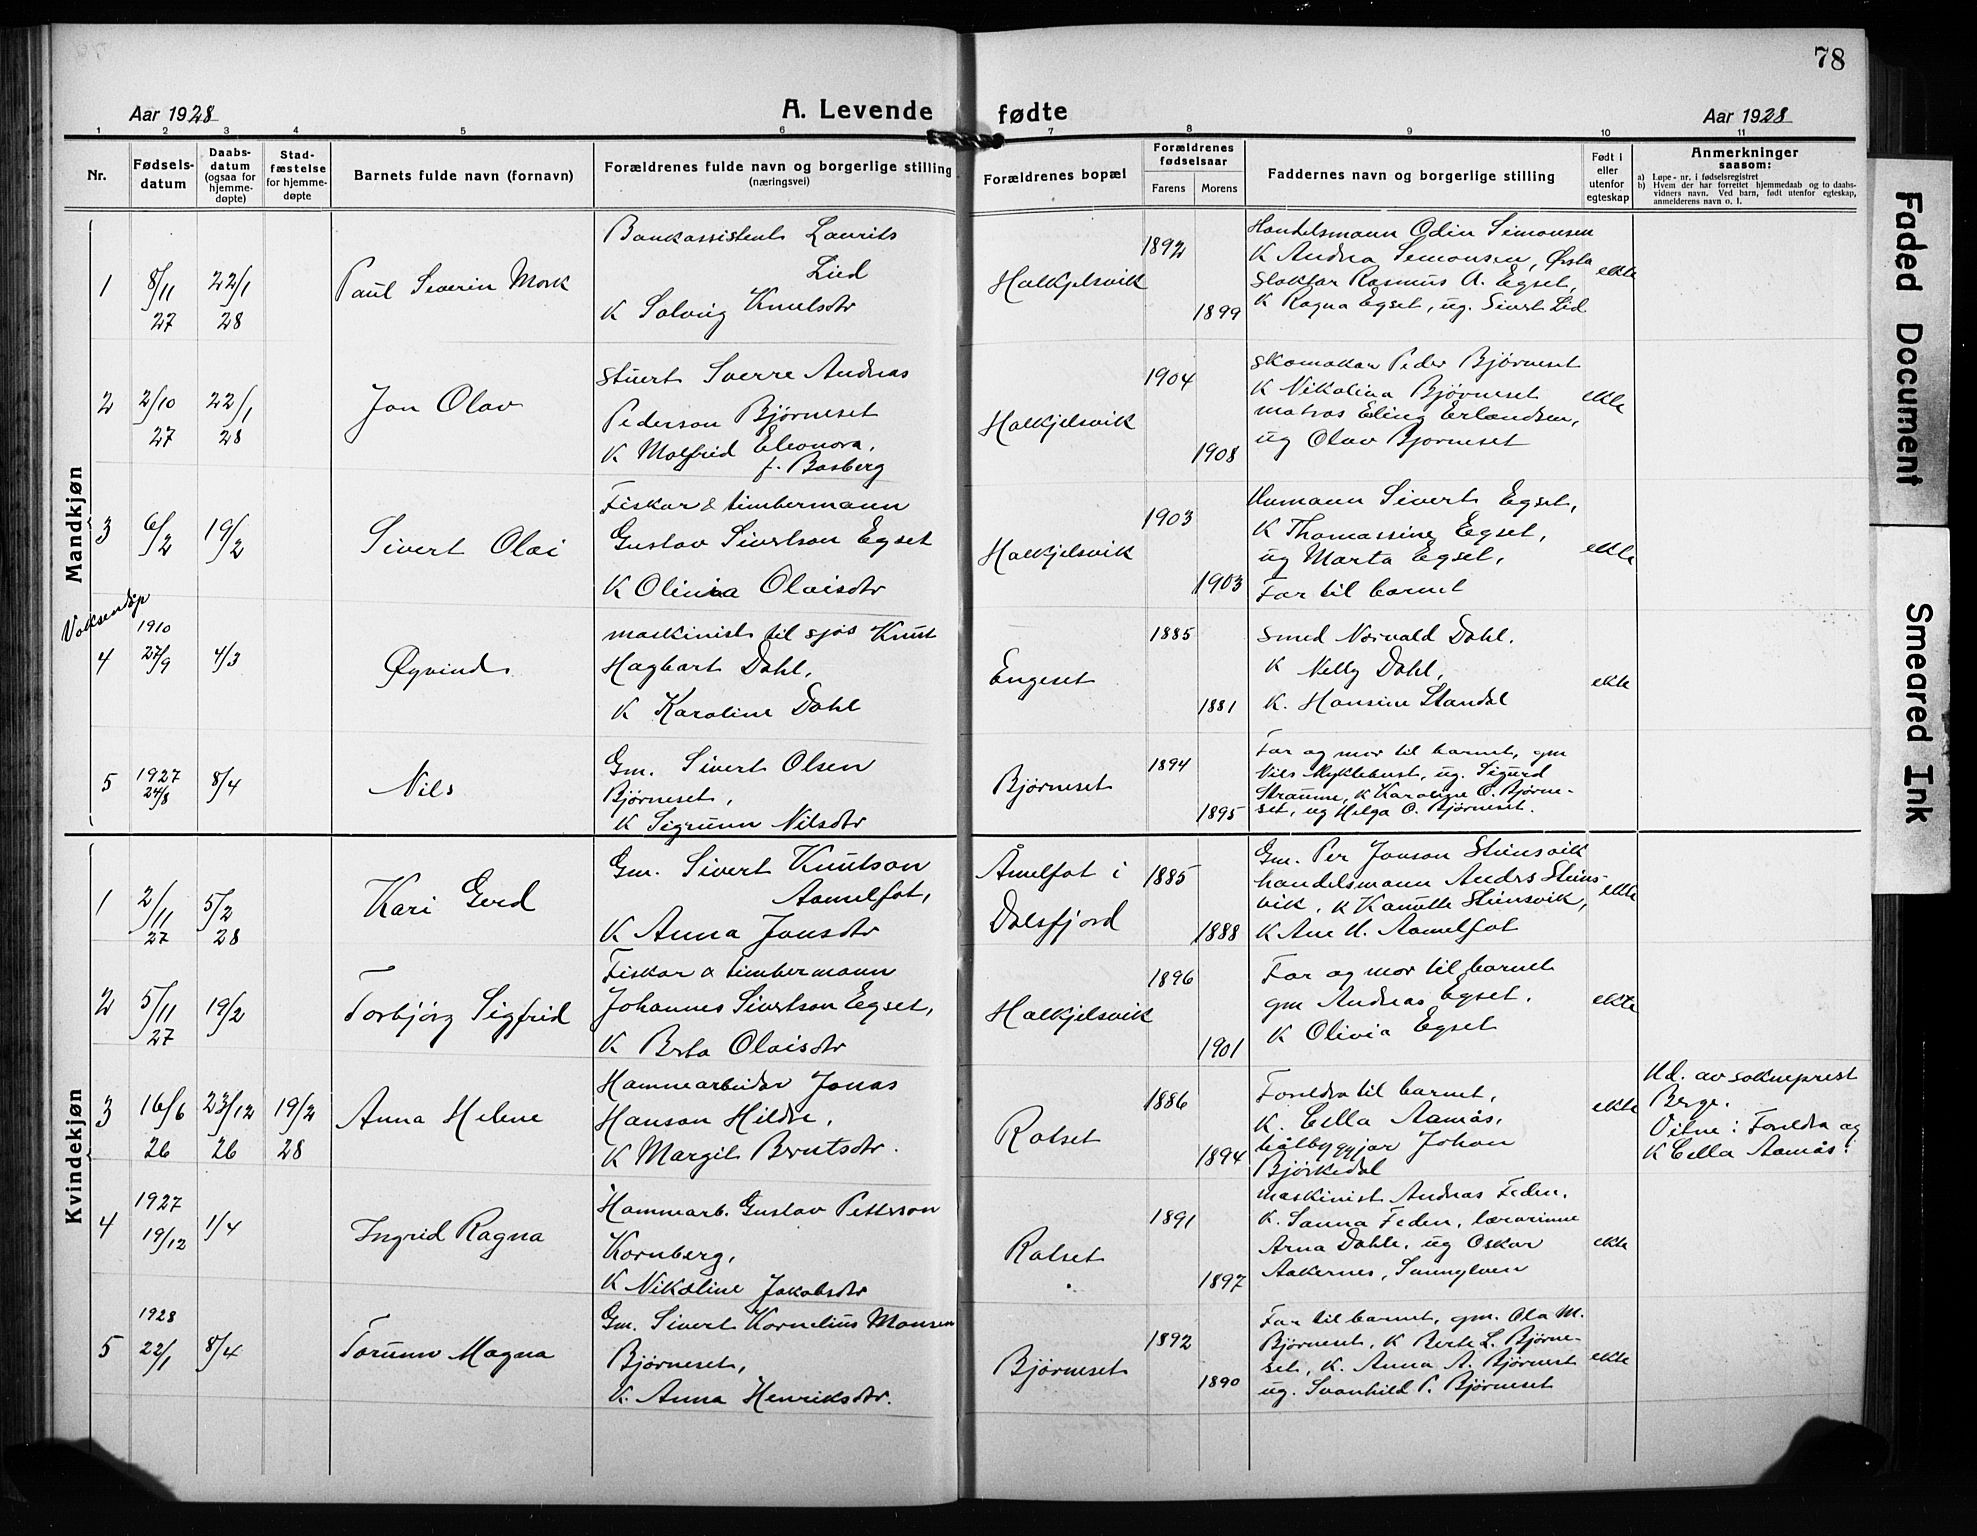 78
Aar 1928
A. Levende fødte
Aar 1928
1 2 3 4 5 6 7 8 9 10 11
Nr.
Fødsels-
datum
Daabs-
datum
(ogsaa for
hjemme-
døpte)
Stad-
fæstelse
for hjemme-
døpte
Barnets fulde navn (fornavn)
Forældrenes fulde navn og borgerlige stilling
(næringsvei)
Forældrenes bopæl
Forældrenes
fødselsaar
Farens
Morens
Faddernes navn og borgerlige stilling
Født i
eller
utenfor
egteskap
Anmerkninger
saasom:
a) Løpe-nr. i fødselsregistret
b) Hvem der har forrettet hjemmedaab og to daabs-
vidners navn. Ved barn, født utenfor egteskap,
anmelderens navn o. l.
Mandkjøn
1
8/11
27
22/1
28
Paul Severin Mork
Bankassistent Laurits
Lied
K Solveig Knutsdtr
Halkjelsvik
1892
1899
Handelsmann Odin Simonsen
K Andrea Simonsen, Ørsta
Slaktar Rasmus A. Egset,
K Ragna Egset, ug. Sivert Lid
ekte
2
2/10
27
22/1
28
Jon Olav
Stuert Sverre Andreas
Pederson Bjørneset
K Molfrid Eleonora,
f. Basberg
Halkjelsvik
1904
1908
Skomakar Peder Bjørneset
K Nikolina Bjørneset
matros Eling Erlandsen,
ug Olav Bjørneset
ekte
3
6/2
19/2
Sivert Olai
Fiskar & timbermann
Gustav Sivertson Egset
K Olivia Olaisdtr
Halkjelsvik
1903
1903
Sivert Egset,
K Thomassine Egset,
ug Marta Egset,
Far til barnet
ekte
Voksendåp
4
1910
27/9
4/3
Øyvind
maskinist til sjøs Knut
Hagbart Dahl,
K Karoline Dahl
Engeset
1885
1881
Smed Norvald Dahl,
K Nelly Dahl,
K. Hansine Standal
ekte
5
1927
24/8
8/4
Nils
Gm. Sivert Olsen
Bjørneset,
K Sigrunn Nilsdtr
Bjørneset
1894
1895
Far og mor til barnet, gm
Nils Myklebust, ug. Sigurd
Straume, K Karoline O. Bjørne-
set, ug Helga O. Bjørneset.
Kvindekjøn
1
2/11
27
5/2
28
Kari Gerd
Gm. Sivert Knutson
Aamelfot,
K Anna Jonsdtr
Åmelfot i
Dalsfjord
1885
1888
Gm. Per Jonson Steinsvik
handelsmann Anders Steins-
vik, K Kanutte Steinsvik,
K Ane U. Aamelfot
ekte
2
5/11
27
19/2
Torbjørg Sigfrid
Fiskar & timbermann
Johannes Sivertson Egset,
K Berta Olaisdtr
Halkjelsvik
1896
1901
Far og mor til barnet
gm Andreas Egset,
K Olivia Egset
ekte
3
16/6
26
23/12
26
19/2
28
Anna Helene
Hamnearbeidar Jonas
Hanson Hildre,
K Margit Berntsdtr.
Rotset
1886
1894
Foreldra til barnet,
K. Cella Aamås,
båtbyggjar Johan
Bjørkedal
ekte
Hd. av sokneprest
Berge.
Vitne: Foreldra og
K Cella Aamås.
4
1927
19/12
1/4
Ingrid Ragna
Hamnearb. Gustav Petterson
Kornberg,
K Nikoline Jakobsdtr
Rotset
1891
1897
maskinist Andreas Feden,
K. Sanna Feden, lærarinne
Arna Dahle, ug Oskar
Aakernes, Sunnylven
ekte
5
1928
22/1
8/4
Torunn Magna
Gm. Sivert Kornelius Monsen
Bjørneset,
K. Anna Henriksdtr.
Bjørneset
1892
1890
Far til barnet, gm. Ola M.
Bjørneset, K Berte L. Bjørne-
set, K. Anna A. Bjørneset
ug. Svanhild P. Bjørneset
ekte
Faded Document
Smeared Ink